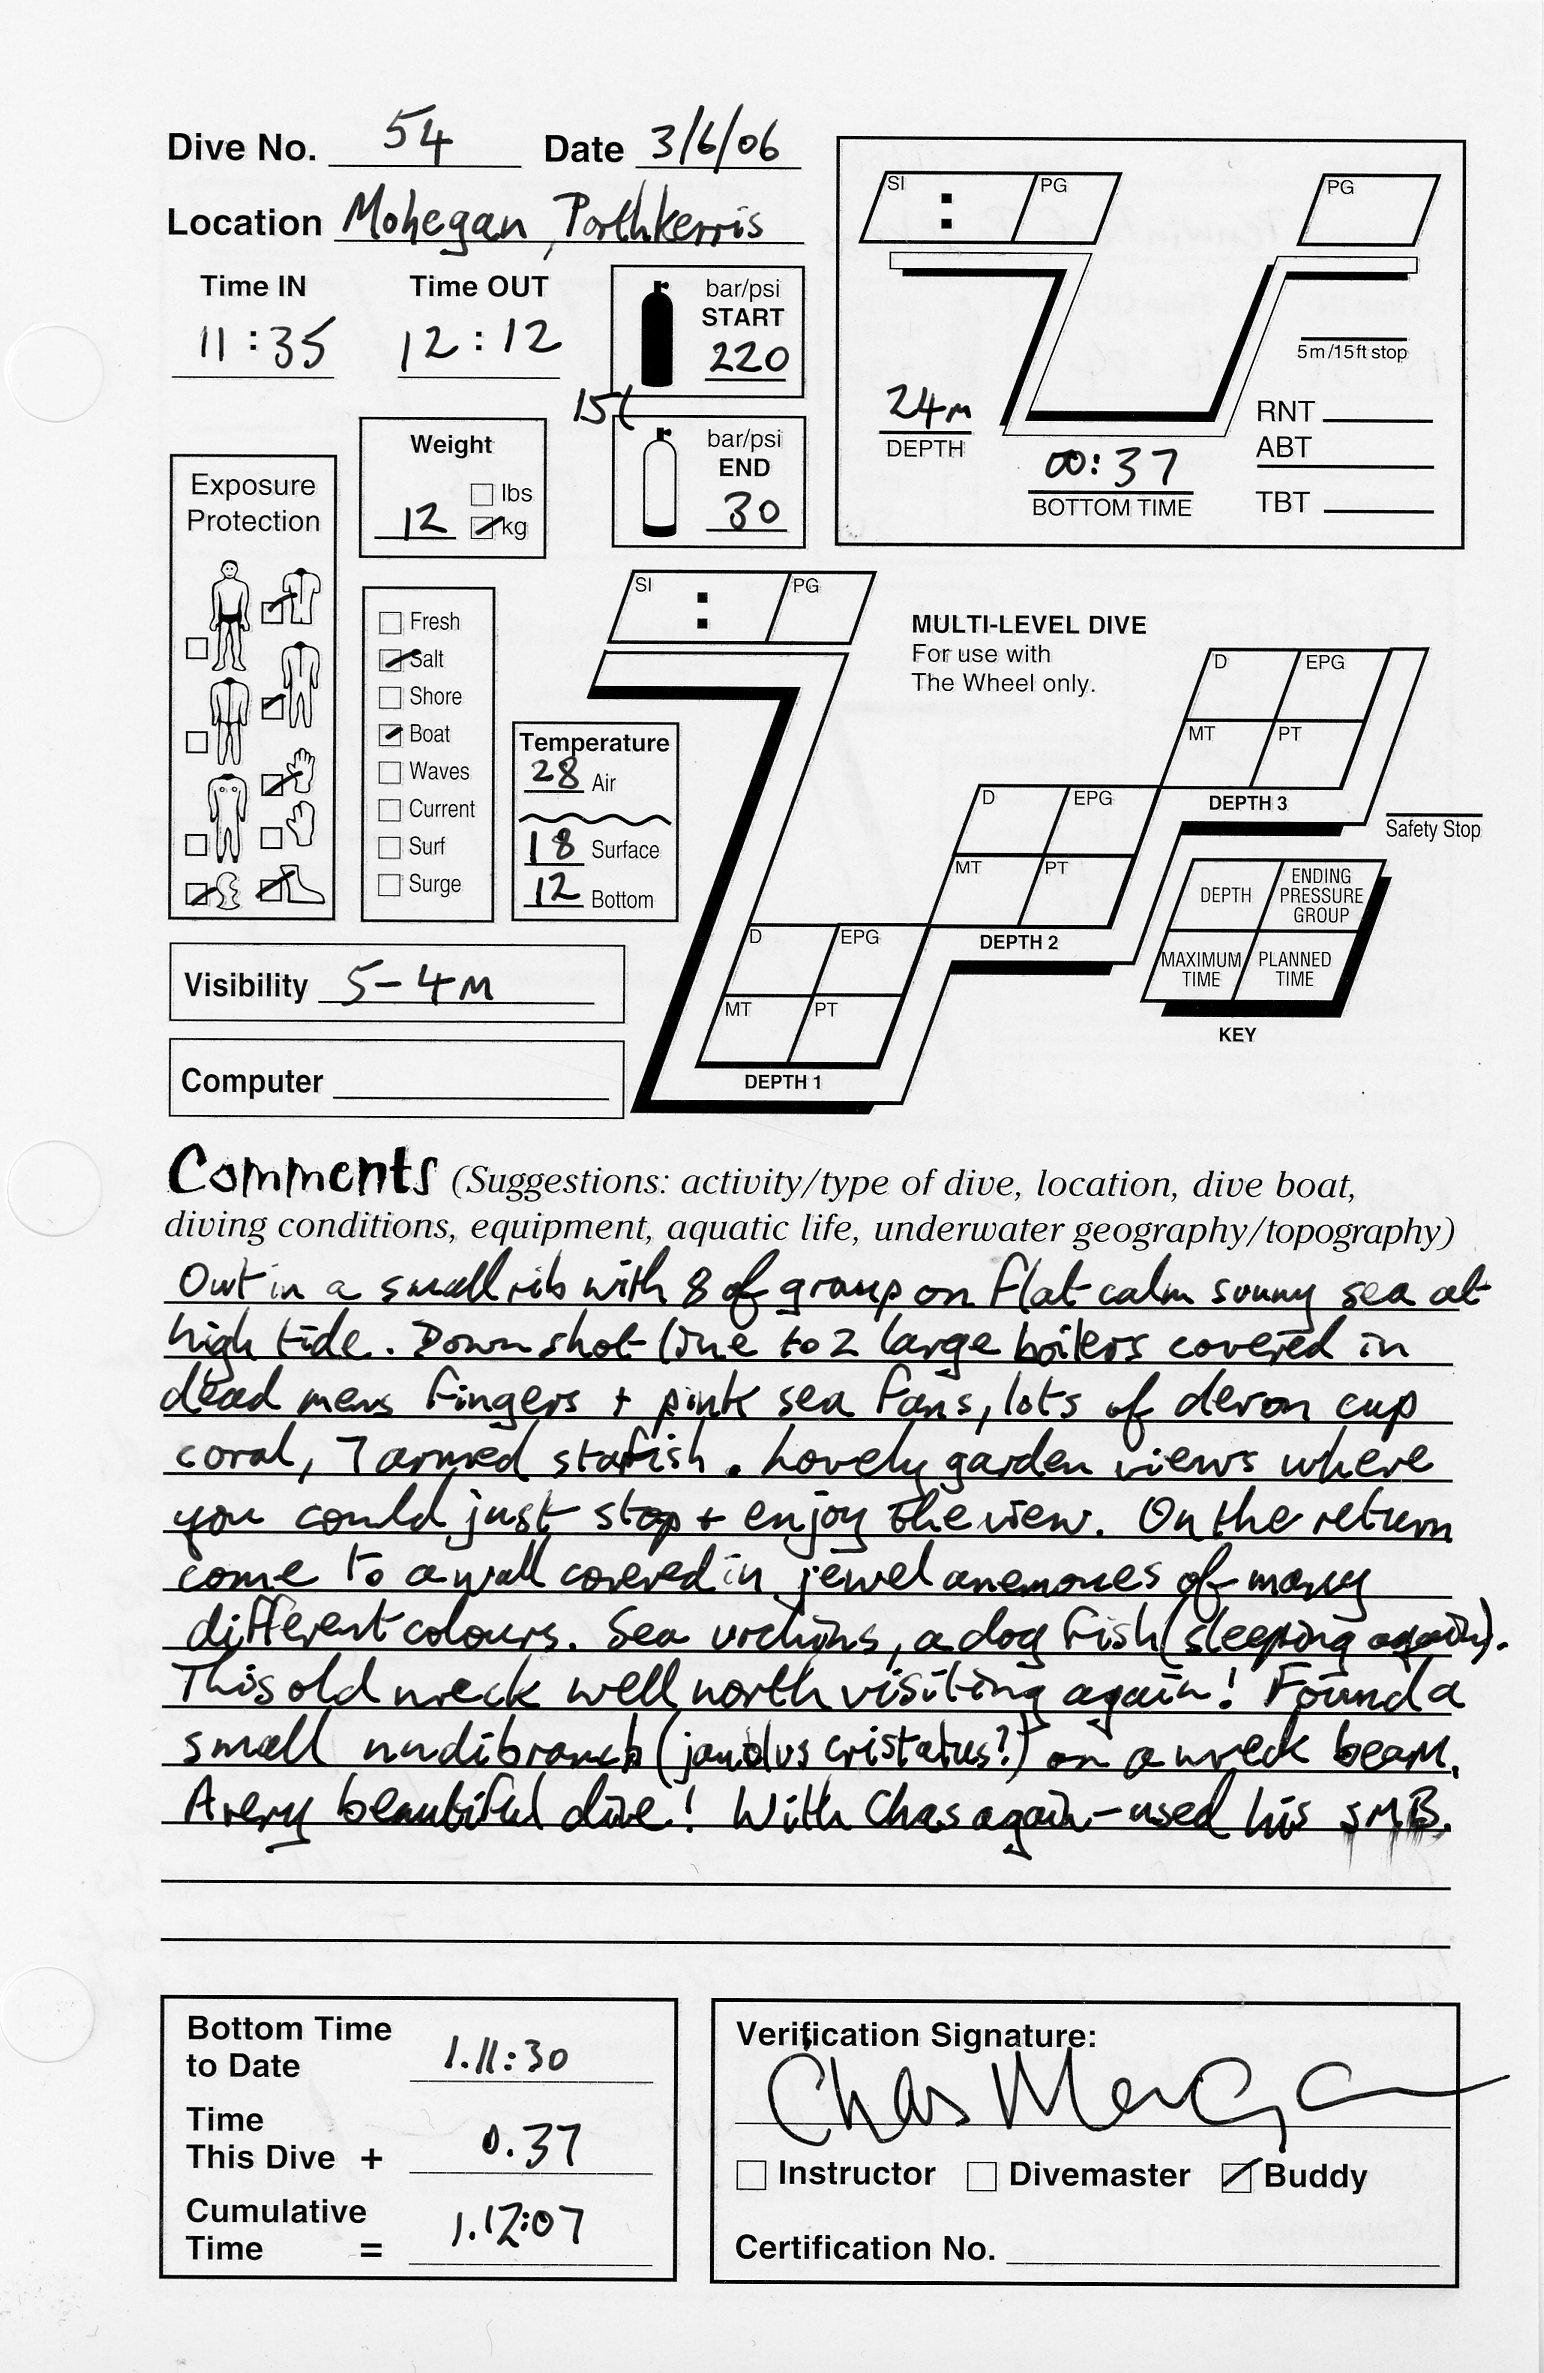 Dive No. 54 Date 3/6/06
Location Mohegan, Porthkerris
Time IN Time OUT
11:35 12:12
bar/psi
START
220
15l
bar/psi
END
30
Weight
lbs
12 kg
Exposure
Protection
Fresh
Salt
Shore
Boat
Waves
Current
Surf
Surge
Temperature
28 Air
18 Surface
12 Bottom
Visibility 5-4m
Computer
SI : PG
PG
5m/15ft stop
24m
DEPTH
00:37
BOTTOM TIME
RNT
ABT
TBT
SI : PG
MULTI-LEVEL DIVE
For use with
The Wheel only.
D EPG
MT PT
DEPTH 3
Safety Stop
D EPG
MT PT
DEPTH 2
D EPG
MT PT
DEPTH 1
DEPTH
ENDING
PRESSURE
GROUP
MAXIMUM
TIME
PLANNED
TIME
KEY
Comments (Suggestions: activity/type of dive, location, dive boat,
diving conditions, equipment, aquatic life, underwater geography/topography)
Out in a small rib with 8 of group on flat calm sunny sea at
high tide. Down shot line to 2 large boilers covered in
dead mens fingers + pink sea fans, lots of devon cup
coral, 7 armed stafish. Lovely garden views where
you could just stop + enjoy the view. On the return
come to a wall covered in jewel anemones of many
different colours. Sea urchins, a dog fish (sleeping again).
This old wreck well worth visiting again! Found a
small nudibranch (janolus cristatus?) on a wreck beam.
A very beautiful dive! With Chas again - used his SMB.
Bottom Time
to Date 1.11:30
Time
This Dive + 0.37
Cumulative
Time = 1.12:07
Verification Signature:
Chas
Instructor Divemaster Buddy
Certification No.